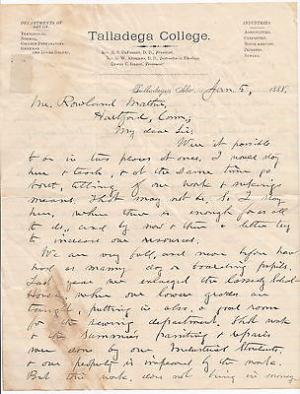 DEPARTMENTS OF STUDY.
THEOLOGICAL,
NORMAL,
COLLEGE PREPARATORY,
GRAMMAR
AND LOWER GRADES.
Talladega College.
INDUSTRIES
AGRICULTURE,
CARPENTRY,
HOUSEKEEPING,
PRINTING,
SEWING.
Rev. H. S. DeForest, D. D., President.
Rev. G. W. Andrews, D. D., Instructor in Theology
Treasurer
Talladega, Ala., Jan. 5, 1888.
Mr. Rowland Mather,
Hartford, Conn;
My dear Sir;
Were it possible
to be in two places at once, I would stay
here & teach, & at the same time go
North, telling of our work & seeking
means. That may not be, so I stay
here, where there is enough for us all
to do, and by now & then a letter try
to increase our resources.
We are very full, and never before have
had so many day or boarding pupils.
Last year we enlarged the Cassedy School-
House where our lower grades are
taught, putting in also, a good room
for the sewing department. That work
& the summer's painting & repairs
were done by our Industrial Students,
& our property is improved by the work.
But this work does not bring in money